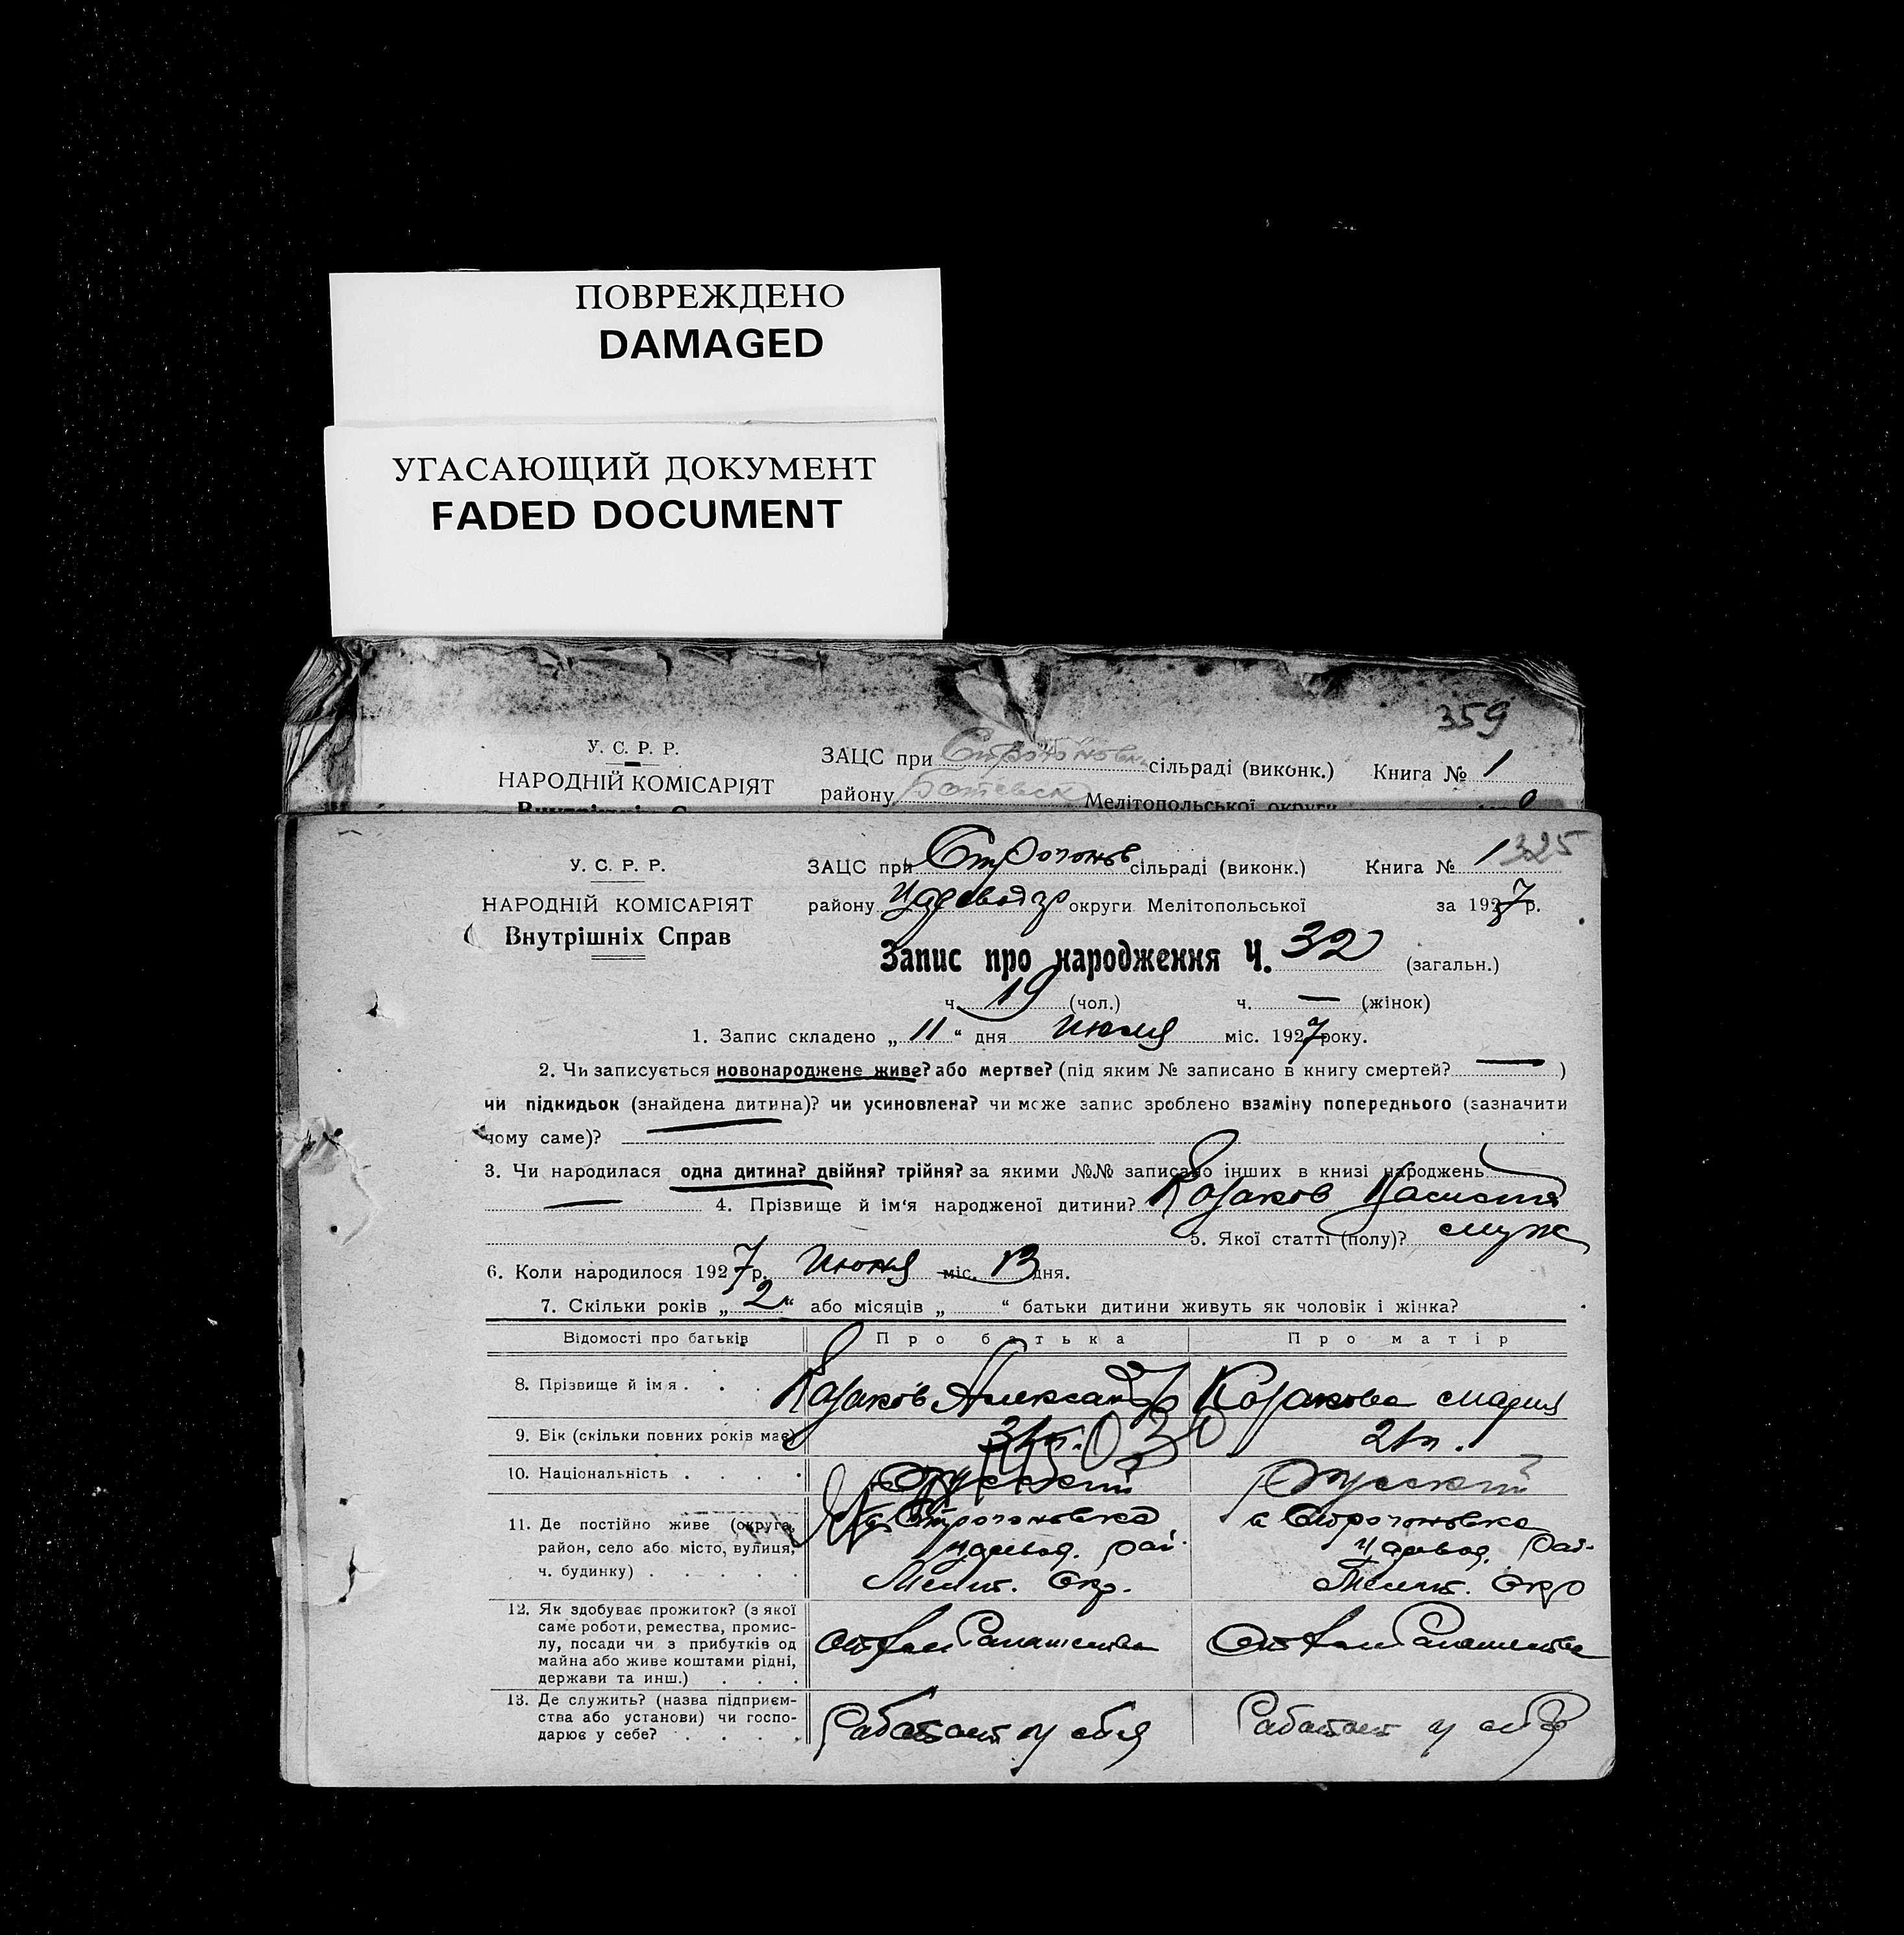 ПОВРЕЖДЕНО
DAMAGED
УГАСАЮЩИЙ ДОКУМЕНТ
FADED DOCUMENT
359
У. С. Р. Р.
НАРОДНІЙ КОМІСАРІЯТ
ЗАЦС при Строгоновск сільраді (виконк.) Книга № 1
району Ботевск Мелітопольської округи
325
У. С. Р. Р.
НАРОДНІЙ КОМІСАРІЯТ
Внутрішніх Справ
ЗАЦС при Строгонов сільраді (виконк.) Книга № 1
району Царевод округи Мелітопольської за 1927 р.
Запис про народження Ч. 32 (загальн.)
ч. 19 (чол.) ч. — (жінок)
1. Запис складено „ 11 “ дня Июля міс. 1927 року.
2. Чи записується новонароджене живе? або мертве? (під яким № записано в книгу смертей? — )
чи підкидьок (знайдена дитина)? чи усиновлена? чи може запис зроблено взаміну попереднього (зазначити
чому саме)?
3. Чи народилася одна дитина? двійня? трійня? за якими №№ записано інших в книзі народжень
— 4. Прізвище й ім‘я народженої дитини? Козаков
5. Якої статті (полу)? муж
6. Коли народилося 1927 р. Июня міс. 13 дня.
7. Скільки років „ 2 “ або місяців „ “ батьки дитини живуть як чоловік і жінка?
Відомості про батьків Про батька Про матір
8. Прізвище й імя . . . Козаков Александр Козакова Мария
9. Вік (скільки повних років має) 31 л. 21 л.
10. Національність . . . . Русский Русский
11. Де постійно живе (округа, район, село або місто, вулиця, ч. будинку) . . . . .
с Строгоновка
Царевод. рай.
Мелит. Окр.
с Строгоновка
Царевод. Рай.
Мелит. Окр
12. Як здобуває прожиток? (з якої
саме роботи, ремества, промис-
лу, посади чи з прибутків од
майна або живе коштами рідні,
держави та инш.) . . .
от хлебопашества
От хлебопашества
13. Де служить? (назва підприєм-
ства або установи) чи госпо-
дарює у себе? . . . .
Работает у себя
Работает у себя